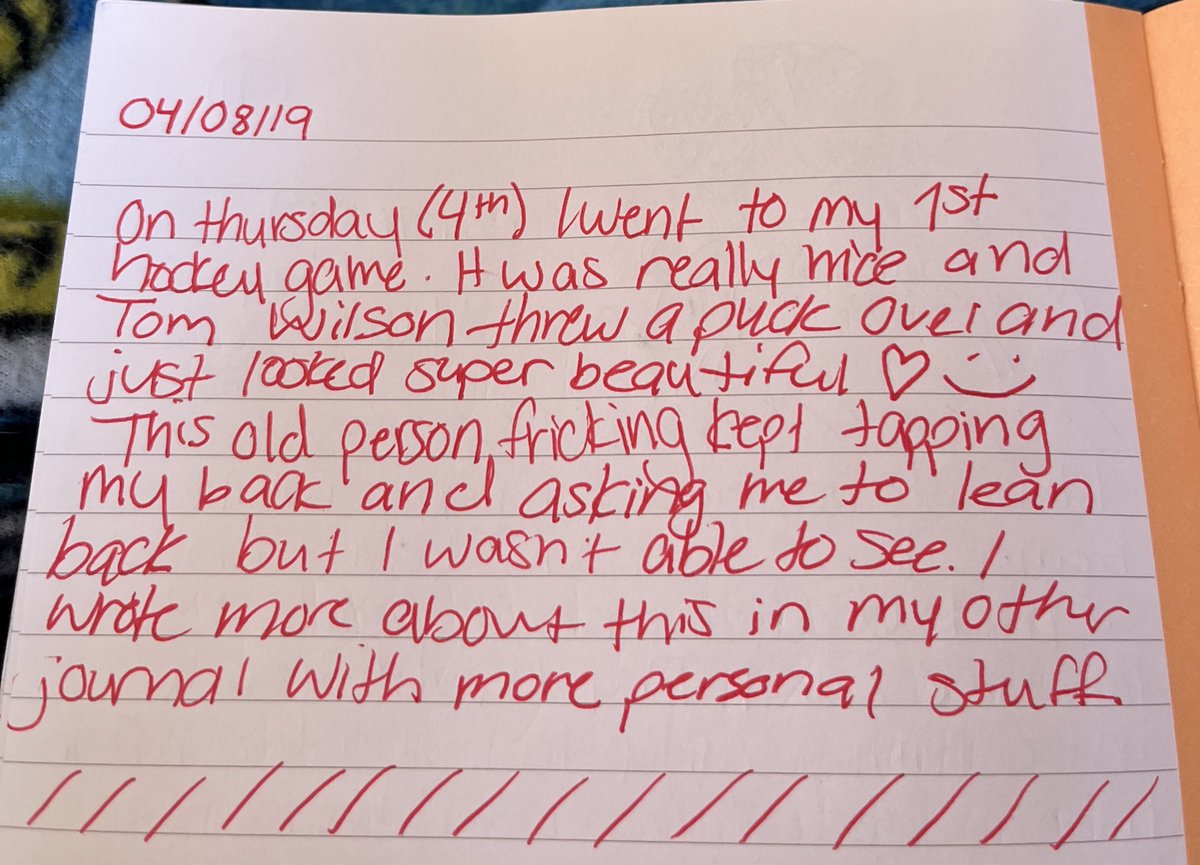 04/08/19
On thursday (4th) I went to my 1st
hockey game. It was really nice and
Tom Wilson threw a puck over and
just looked super beautiful ♡ :)
This old person, fricking kept tapping
my back and asking me to lean
back but I wasn't able to see. I
wrote more about this in my other
journal with more personal stuff.
/ / / / / / / / / / / / / / / / / / /